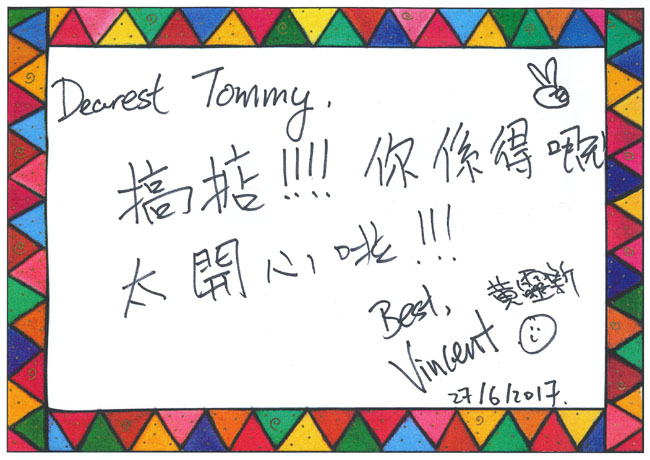 Dearest Tommy,
搞掂!!!! 你係得嘅!
太開心啦!!!
Best,
黃靈新
Vincent
27/6/2017.